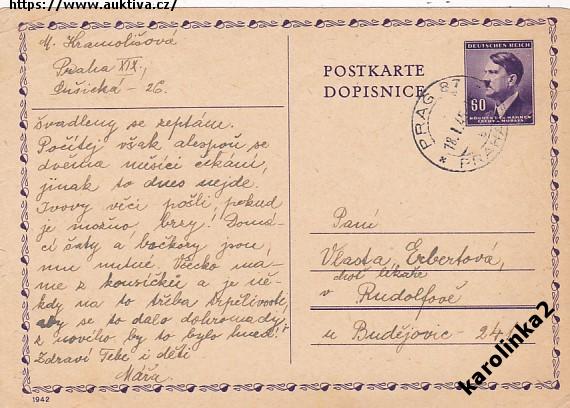 https://www.auktiva.cz/
M. Kramolišová
Praha XIX.,
Sušická - 26.
POSTKARTE
DOPISNICE
DEUTSCHES REICH
60
BÖHMEN U. MÄHREN
ČECHY A MORAVA
PRAG 87
18.I.
* PRAHA
Švadleny se zeptám.
Počítej však alespoň se
dvěma měsíci čekání,
jinak to dnes nejde.
Ivovy věci pošli, pokud
je možno, brzy! Domá-
cí šaty a bačkory jsou
mu nutné. Všecko má-
me z kousíčků a je ně-
kdy na to třeba trpělivosti,
aby se to dalo dohromady,
z nového by to bylo hned!
Zdraví Tebe i děti
Máňa
Paní
Vlasta Erbertová,
choť lékaře
v Rudolfově
u Budějovic - 24
1942
karolinka2